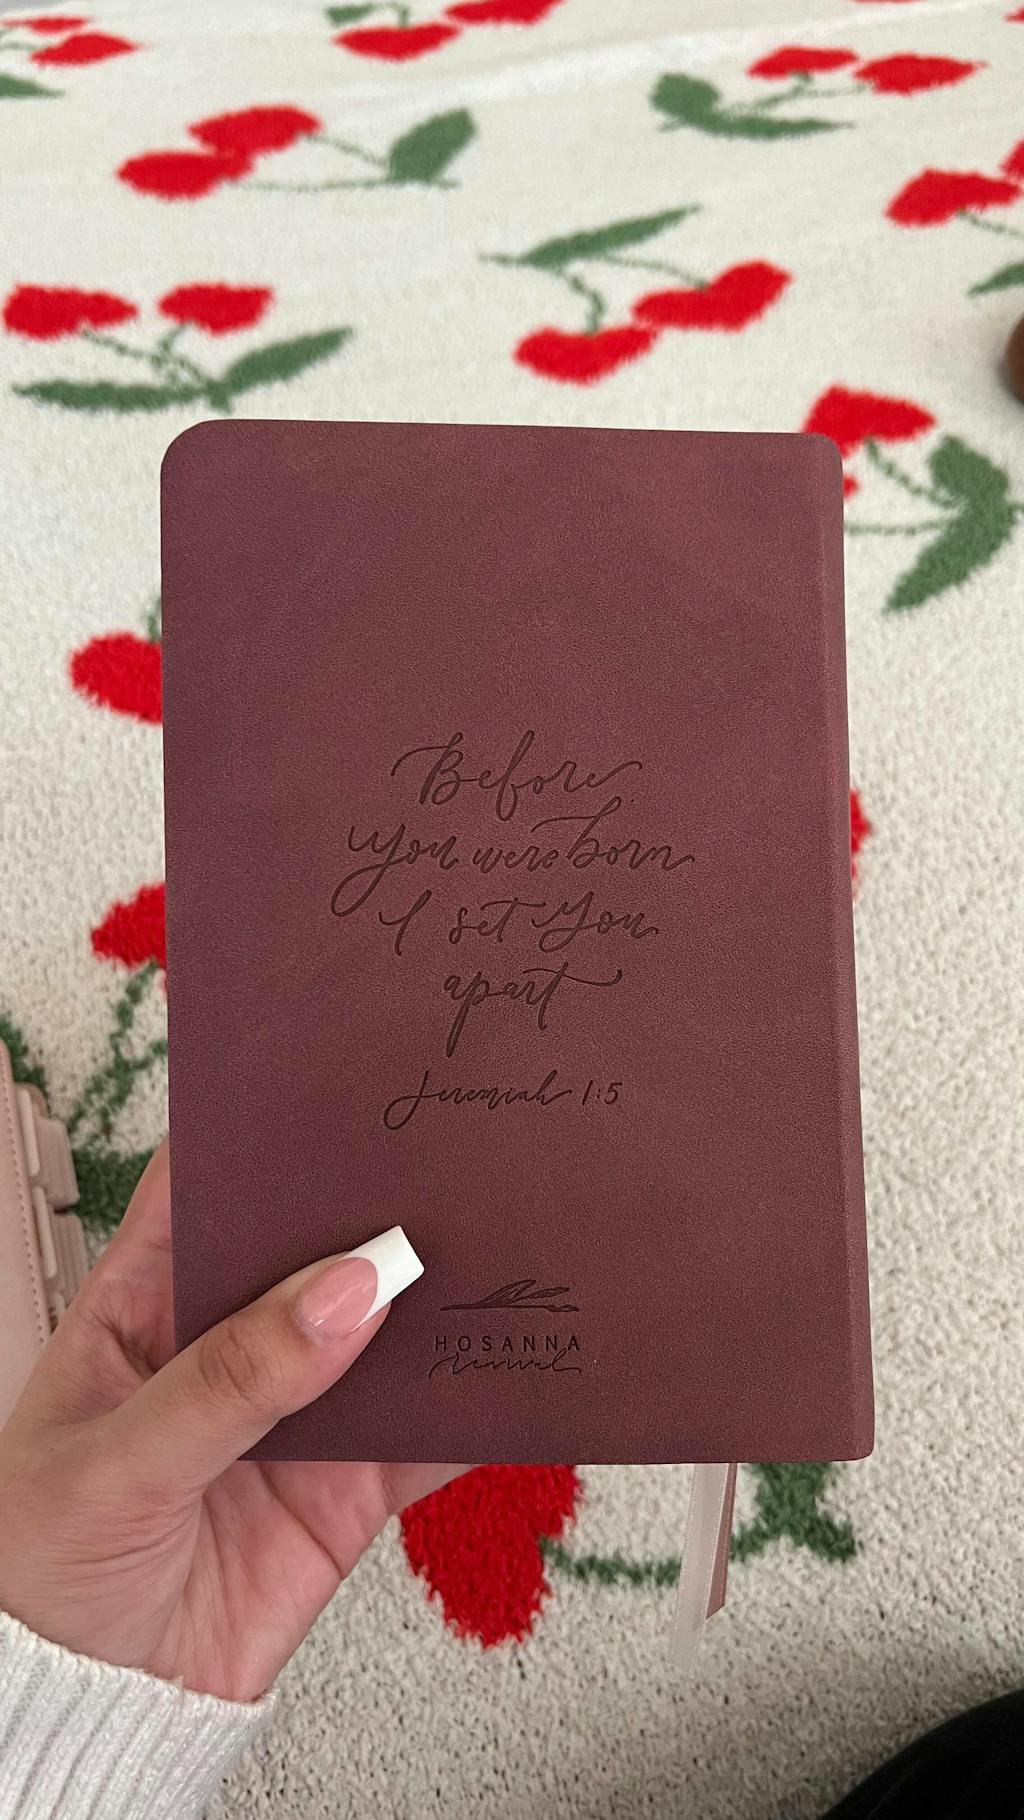 Before
you were born
I set you
apart
Jeremiah 1:5
HOSANNA
revival